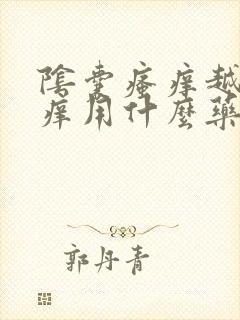 陰囊瘙癢越
癢用什麼藥
郭丹青